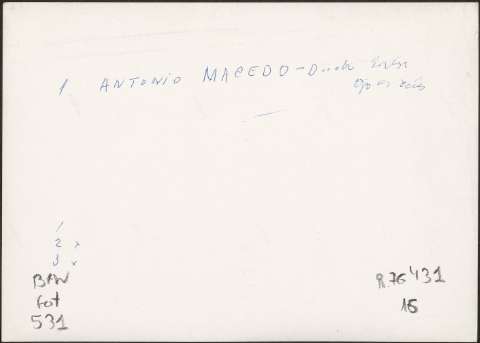 1 ANTONIO MACEDO -
1
2 x
3 x
BPW
Fot
531
R76431
15